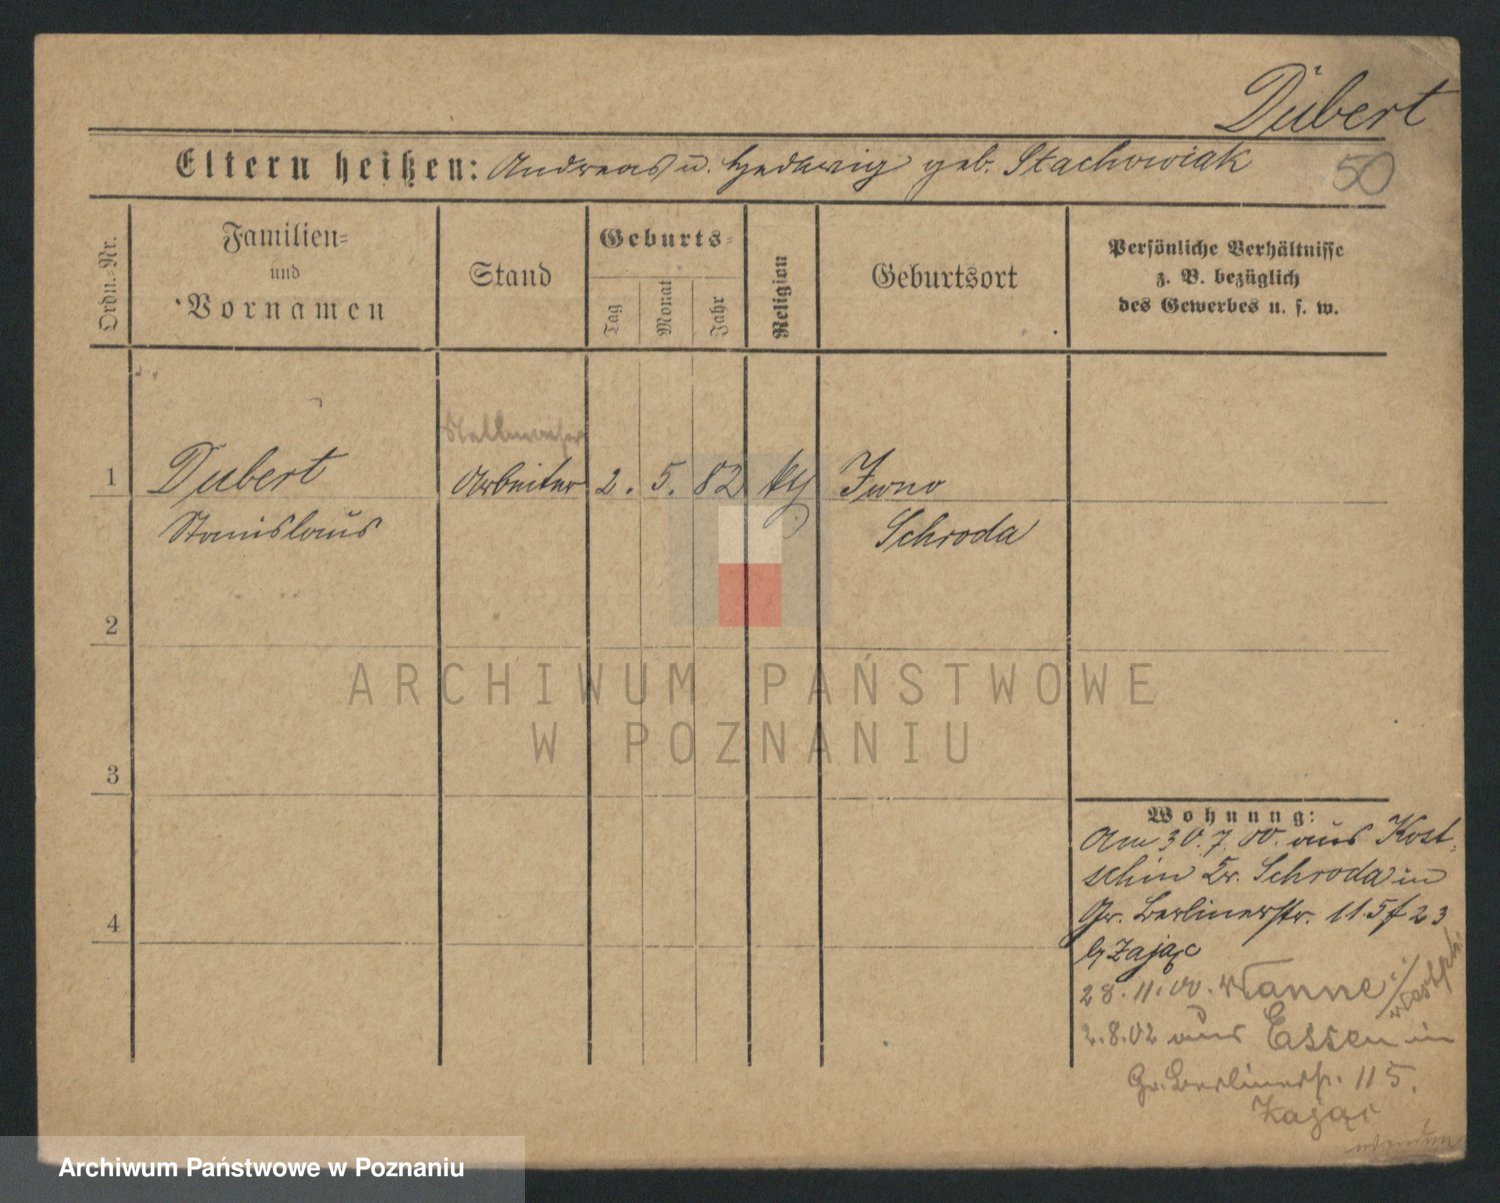 Dubert
Eltern heißen: Andreas u. Hedwig geb. Stachowiak
50
Ordn.-Nr.
Familien-
und
Vornamen
Stand
Geburts-
Tag
Monat
Jahr
Religion
Geburtsort
Persönliche Verhältnisse
z. B. bezüglich
des Gewerbes u. s. w.
1
Dubert
Arbeiter
2. 5. 82
Iwno
Stanislaus
Schroda
2
ARCHIWUM PAŃSTWOWE
W POZNANIU
3
Wohnung:
Am 30.7.00. aus Kost-
schin Kr. Schroda in
Gr. Berlinerstr. 115
b/Zając
28.11.00. Wanne i/Westph.
2.8.02 aus Essen in
Gr. Berlinerstr. 115.
Zając
4
Archiwum Państwowe w Poznaniu